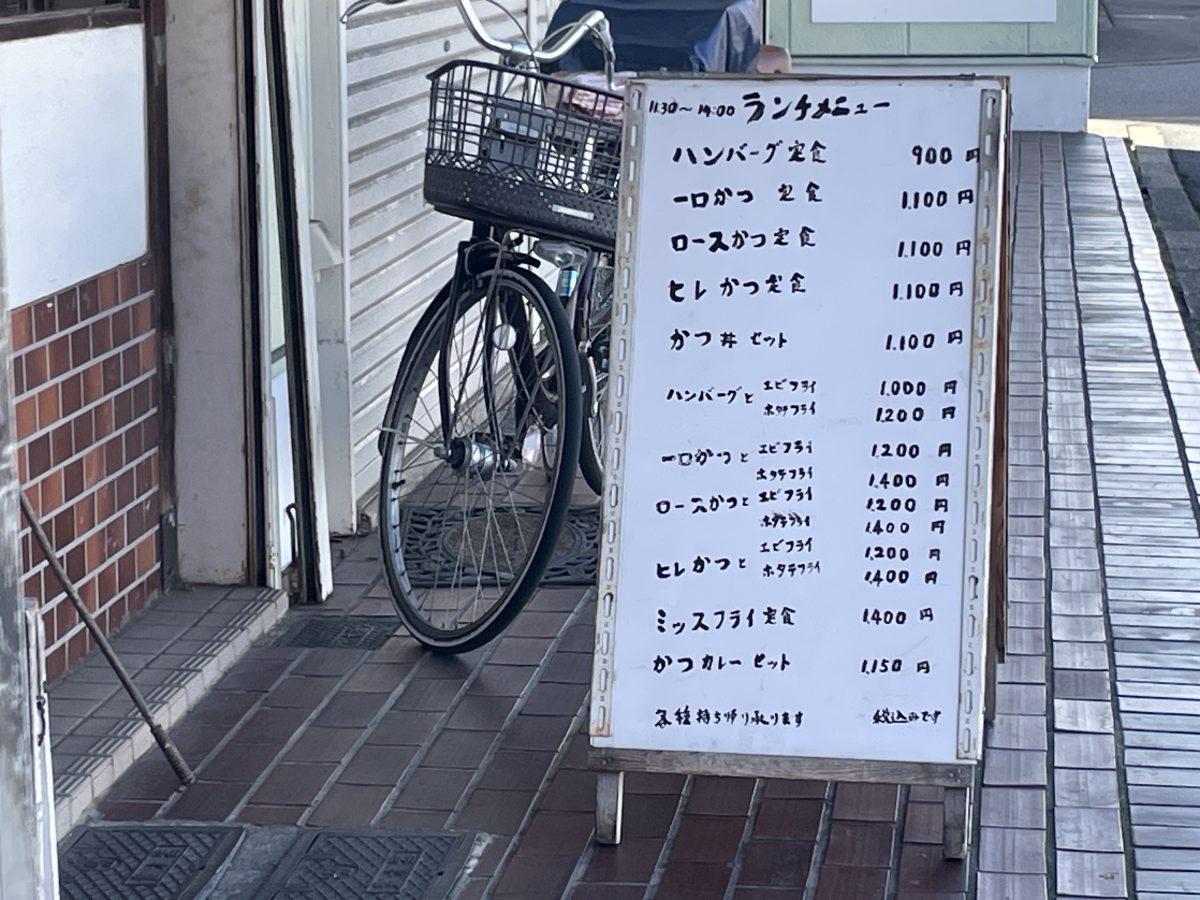 11:30〜14:00 ランチメニュー
ハンバーグ定食 900円
一口かつ 定食 1.100円
ロースかつ定食 1.100円
ヒレかつ定食 1.100円
かつ丼セット 1.100円
ハンバーグと エビフライ 1.000円
ホタテフライ 1.200円
一口かつと エビフライ 1.200円
ホタテフライ 1.400円
ロースかつと エビフライ 1.200円
ホタテフライ 1.400円
エビフライ 1.200円
ヒレかつと ホタテフライ 1.400円
ミックスフライ定食 1.400円
かつカレーセット 1.150円
各種持ち帰り承ります 税込みです